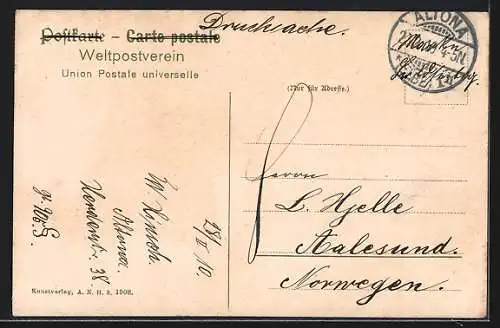 Postkarte – Carte postale
Drucksache.
Weltpostverein
Union Postale universelle
ALTONA
4-5N
(ELBE) 1
Marken
(Nur für Adresse.)
Herrn
L. Hjelle
Aalesund.
Norwegen.
28/II 10
W. Hinsch.
Altona.
Herderstr. 38.
Kunstverlag, A. N. H. 8, 1908.